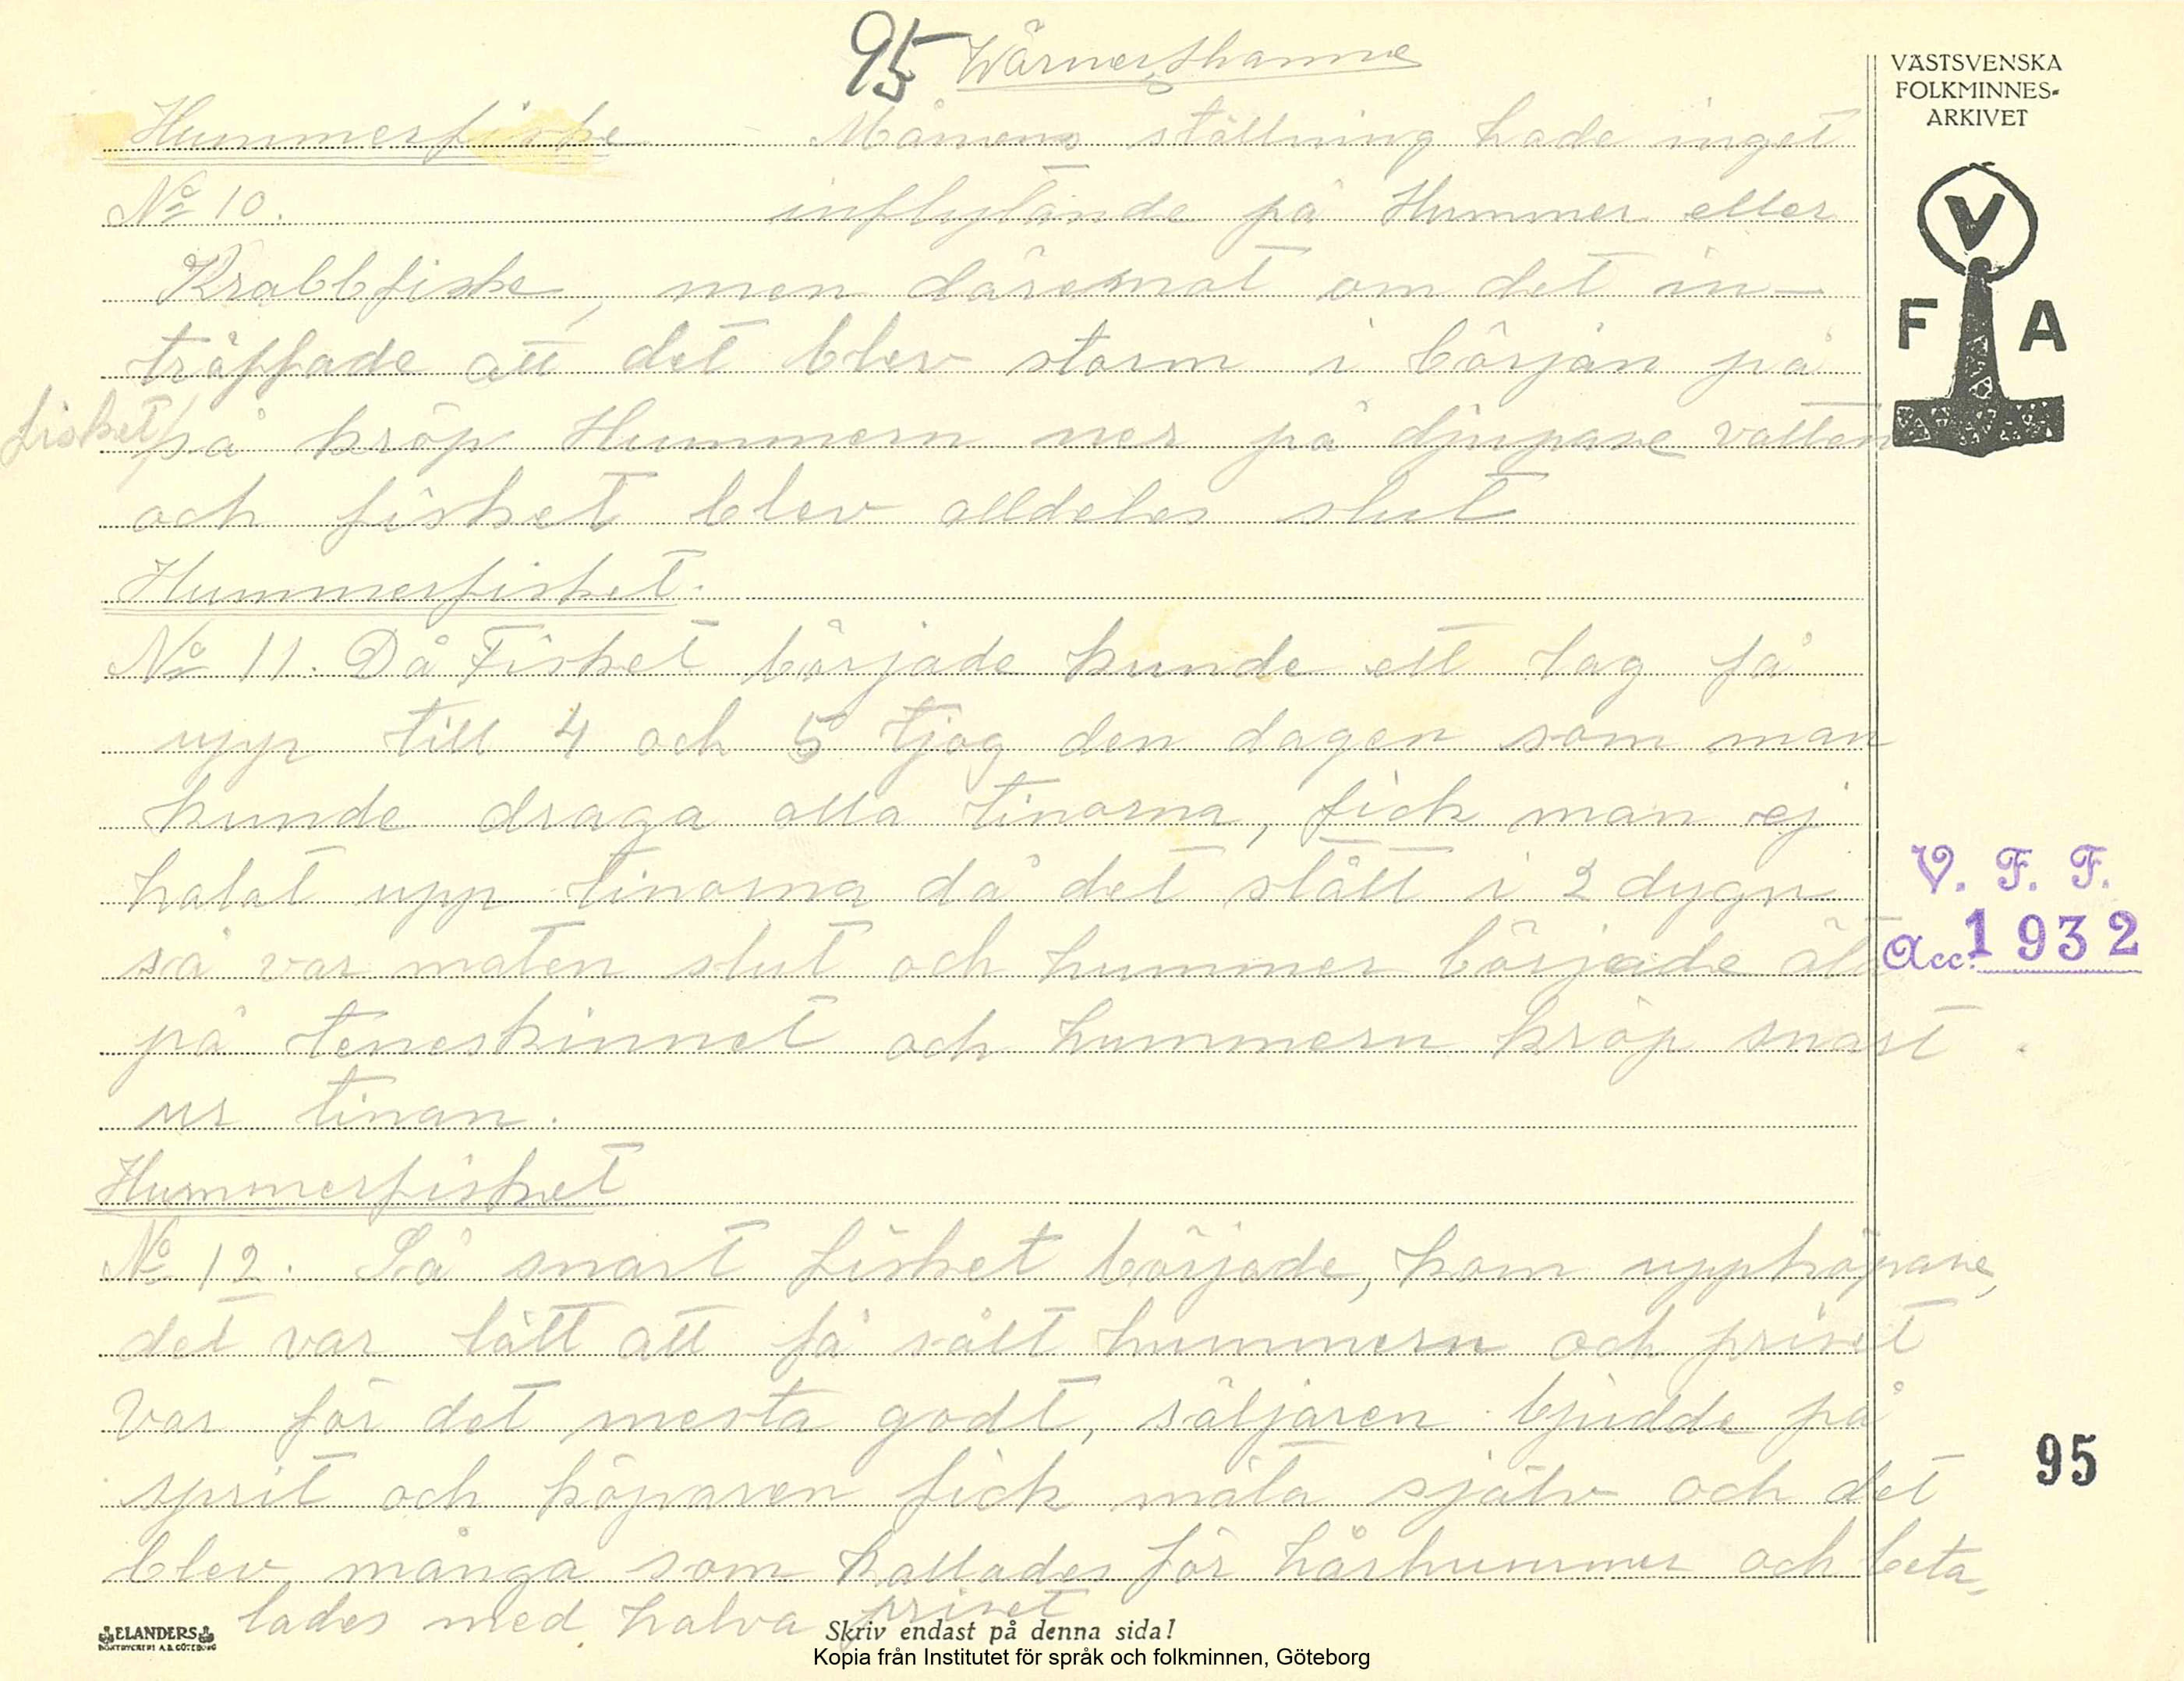 95 Wärnershamn
VÄSTSVENSKA
FOLKMINNES-
ARKIVET
V
F A
Hummerfiske - Månens ställning hade inget
No 10. inflytände på Hummer eller
Krabbfiske, men däremot om det in-
träffade att det blev storm i början på
fisket/på kröp Hummern ner på djupare vatten
och fisket blev alldeles slut
Hummerfisket.
No 11. Då Fisket började kunde ett lag få
upp till 4 och 5 tjog den dagen som man
kunde draga alla tinorna, fick man ej
halat upp tinorna då det stått i 2 dygn
så var maten slut och hummer började äta
på teneskinnet och hummern kröp snart
ur tinan.
Hummerfisket
No 12. Så snart fisket började, kom uppköpare,
det var lätt att få sålt hummern och priset
Var för det mesta godt, säljaren bjudde på
sprit och köparen fick mäta själv och det
blev många som kallades för hårhummer och beta,
lades med halva priset
V. F. F.
Acc. 1932
95
ELANDERS
BOKTRYCKERI A.B. GÖTEBORG
Skriv endast på denna sida!
Kopia från Institutet för språk och folkminnen, Göteborg